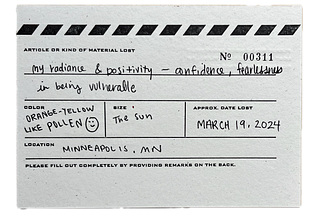 ARTICLE OR KIND OF MATERIAL LOST
Nº 00311
my radiance & positivity — confidence, fearlessness
in being vulnerable
COLOR
ORANGE-YELLOW
LIKE POLLEN
SIZE
The Sun
APPROX. DATE LOST
MARCH 19, 2024
LOCATION
MINNEAPOLIS, MN
PLEASE FILL OUT COMPLETELY BY PROVIDING REMARKS ON THE BACK.